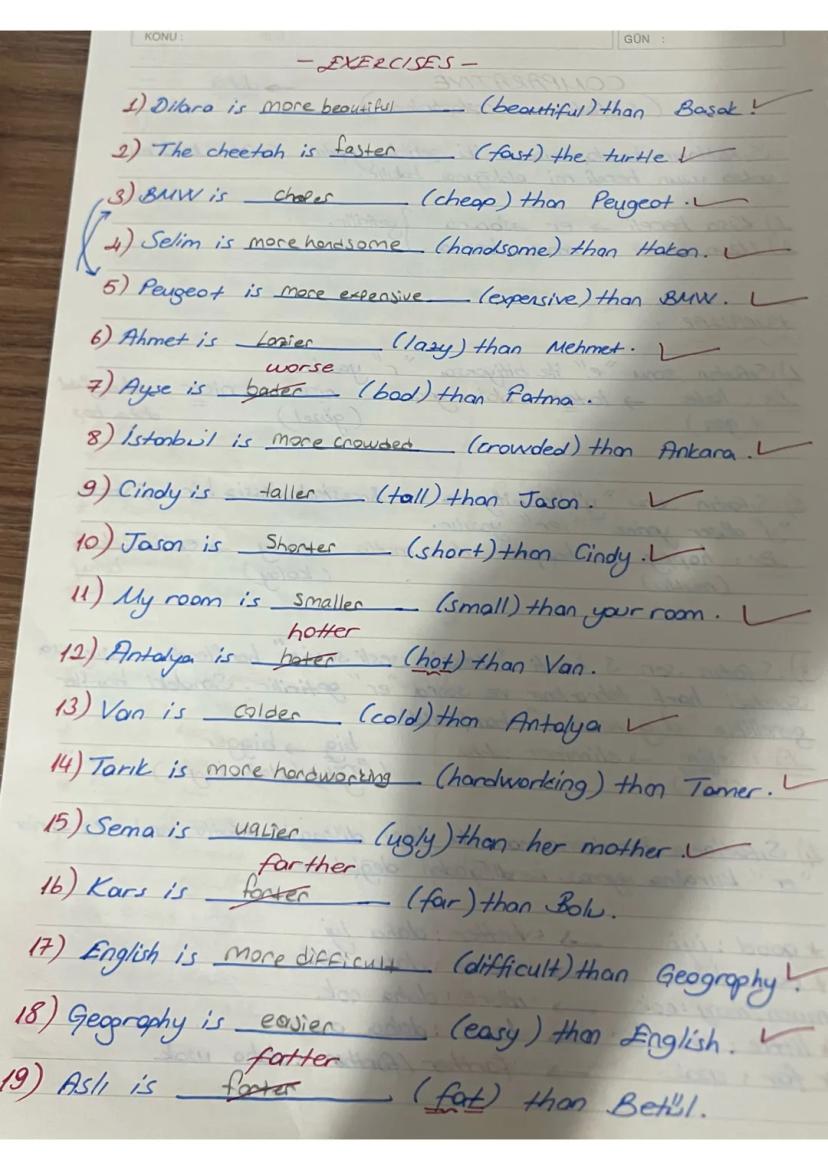 KONU :
GÜN :
- EXERCISES -
1) Dilara is more beautiful (beautiful) than Başak.
2) The cheetah is faster (fast) the turtle
3) BMW is (cheap) than Peugeot.
4) Selim is more handsome (handsome) than Hakan.
5) Peugeot is more expensive (expensive) than BMW.
6) Ahmet is Lazier (lazy) than Mehmet.
worse
7) Ayşe is bader (bad) than Fatma.
8) İstanbul is more crowded (crowded) than Ankara.
9) Cindy is taller (tall) than Jason.
10) Jason is Shorter (short) than Cindy.
11) My room is smaller (small) than your room.
hotter
12) Antalya is hoter (hot) than Van.
13) Van is colder (cold) than Antalya
14) Tarık is more hardworking (hardworking) than Tamer.
15) Sema is uglier (ugly) than her mother.
farther
16) Kars is (far) than Bolu.
17) English is more difficult (difficult) than Geography.
18) Geography is easier (easy) than English.
fatter
19) Aslı is (fat) than Betül.